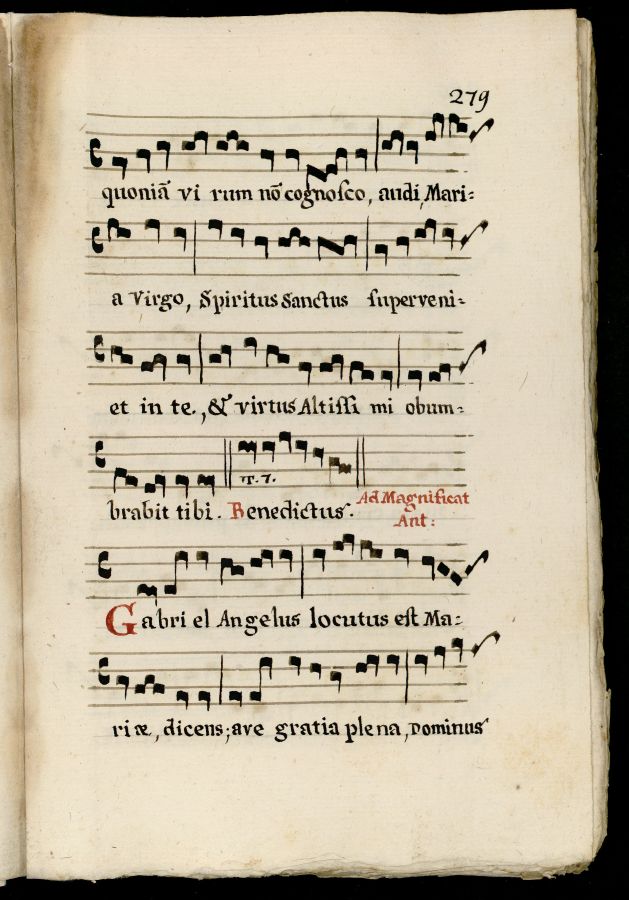 279
quoniã vi rum nõ cognosco, audi, Mari:
a Virgo, Spiritus Sanctus superveni:
et in te., & virtus Altissi mi obum:
T. 7.
brabit tibi. Benedictus. Ad Magnificat
Ant:
Gabri el Angelus locutus est Ma:
riæ, dicens; ave gratia plena, Dominus